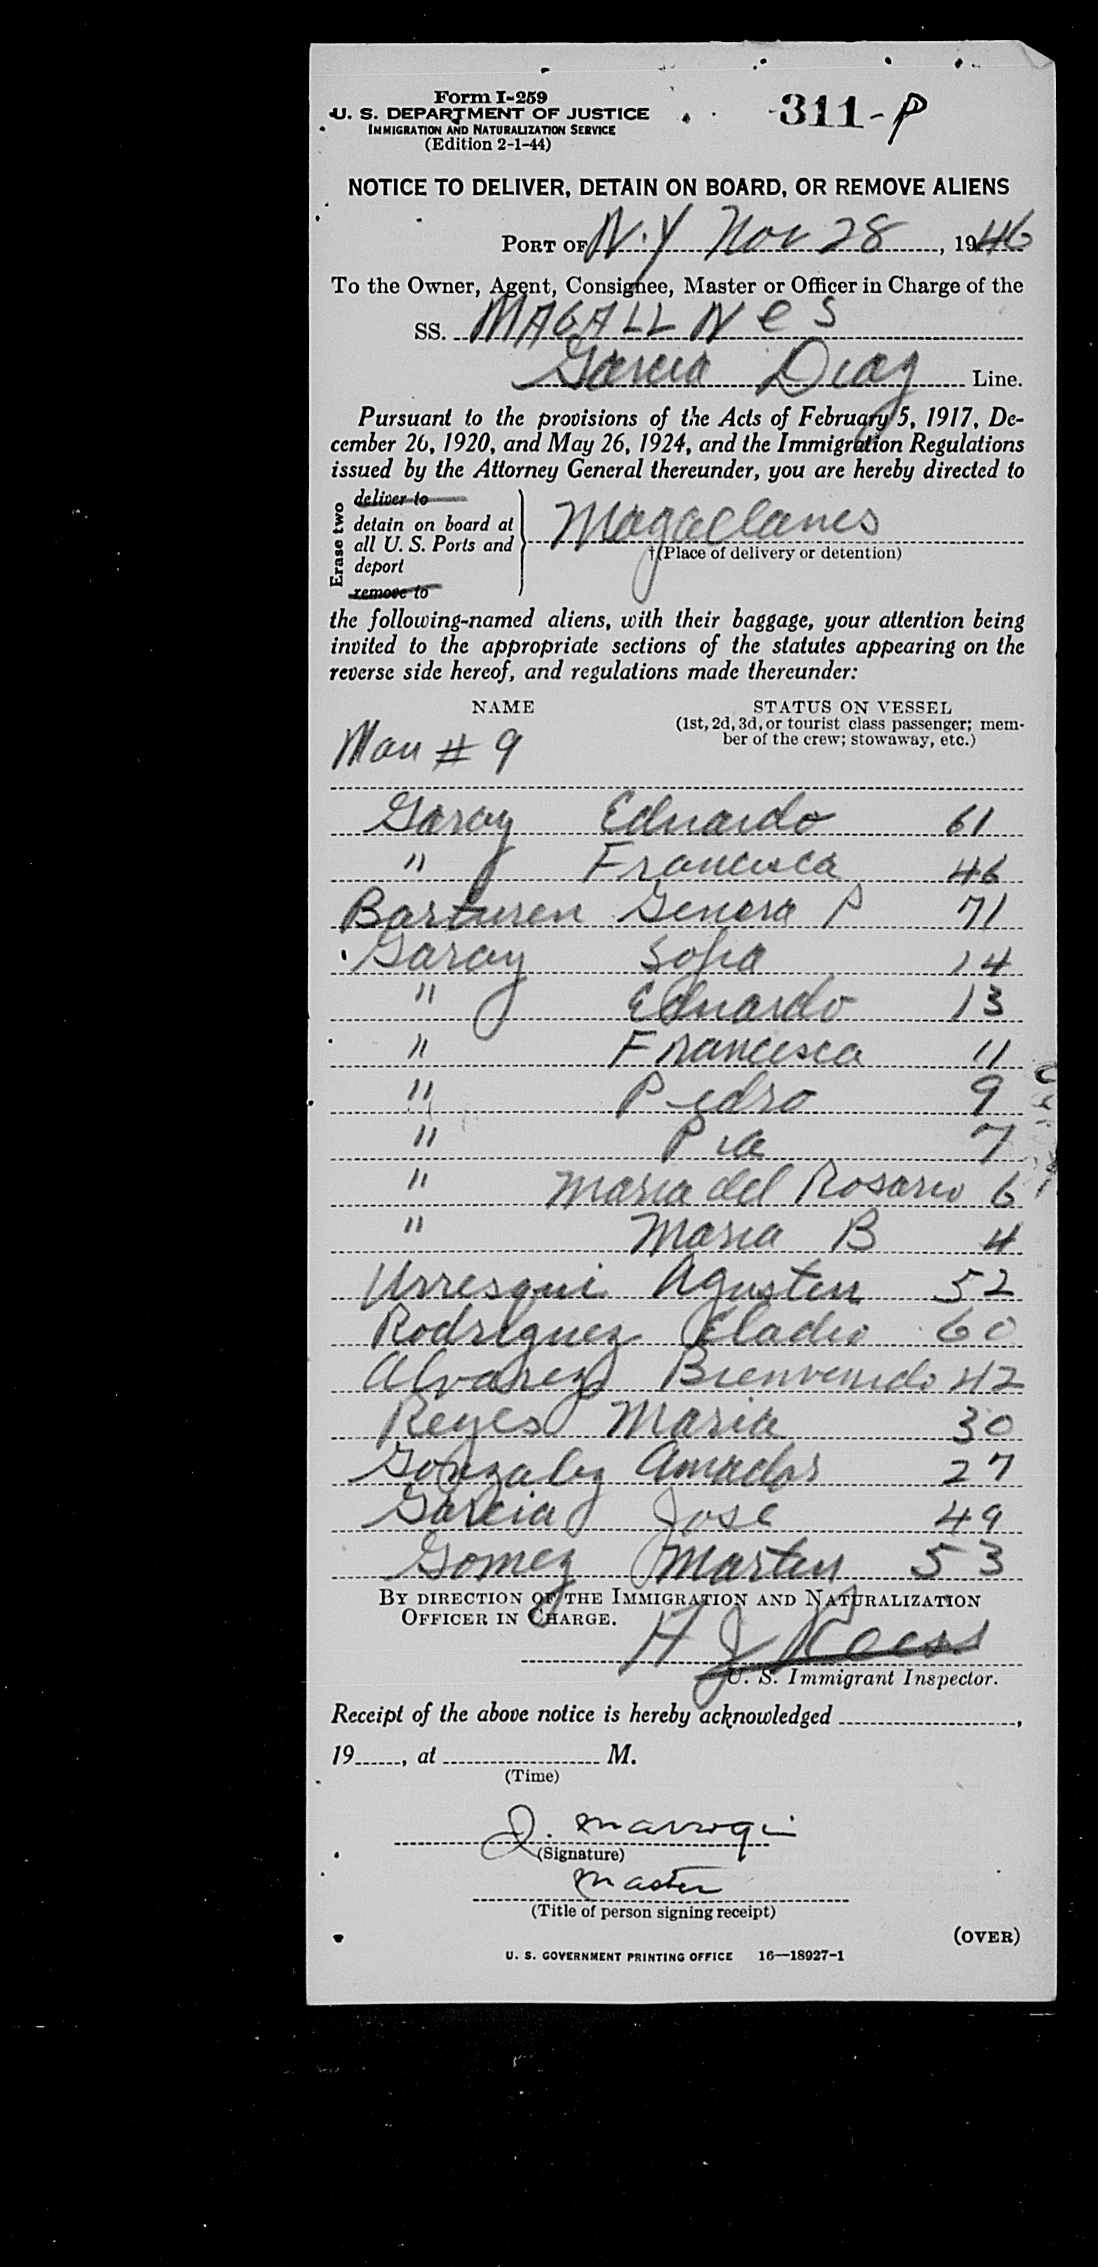 Form I-259
U. S. DEPARTMENT OF JUSTICE
IMMIGRATION AND NATURALIZATION SERVICE
(Edition 2-1-44)
311-P
NOTICE TO DELIVER, DETAIN ON BOARD, OR REMOVE ALIENS
PORT OF N.Y Nov 28, 1946
To the Owner, Agent, Consignee, Master or Officer in Charge of the
SS. MAGALLNeS
Garcia Diaz Line.
Pursuant to the provisions of the Acts of February 5, 1917, De-
cember 26, 1920, and May 26, 1924, and the Immigration Regulations
issued by the Attorney General thereunder, you are hereby directed to
Erase two
deliver to
detain on board at
all U. S. Ports and
deport
remove to
Magallanes
†(Place of delivery or detention)
the following-named aliens, with their baggage, your attention being
invited to the appropriate sections of the statutes appearing on the
reverse side hereof, and regulations made thereunder:
NAME
STATUS ON VESSEL
(1st, 2d, 3d, or tourist class passenger; mem-
ber of the crew; stowaway, etc.)
Man # 9
Garay Eduardo 61
" Francisca 46
Barturen Genera P 71
Garay Sofia 14
" Eduardo 13
" Francisca 11
" Pedro 9
" Pia 7
" Maria del Rosario 6
" Maria B 4
Urresqui Agustin 52
Rodriguez Eladio 60
Alvarez Bienvenido 42
Reyes Maria 30
Gonzalez Amador 27
Garcia Jose 49
Gomez Martin 53
BY DIRECTION OF THE IMMIGRATION AND NATURALIZATION
OFFICER IN CHARGE.
H J
U. S. Immigrant Inspector.
Receipt of the above notice is hereby acknowledged
19, at M.
(Time)
J. Marroqi
(Signature)
Master
(Title of person signing receipt)
(OVER)
U. S. GOVERNMENT PRINTING OFFICE 16—18927-1